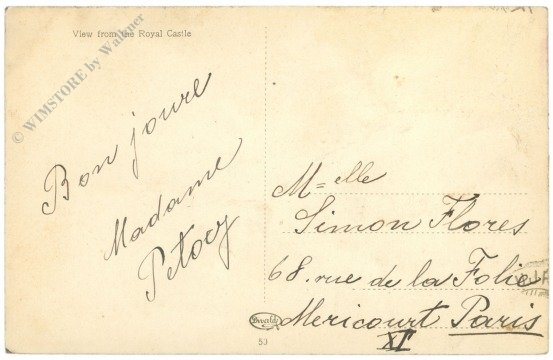 View from the Royal Castle
© WIMSTORE by Walkner
Bon joure
Madame
Petocz
M=elle
Simon Flores
68. rue de la Folie
Mericourt Paris
XI
Divald
53